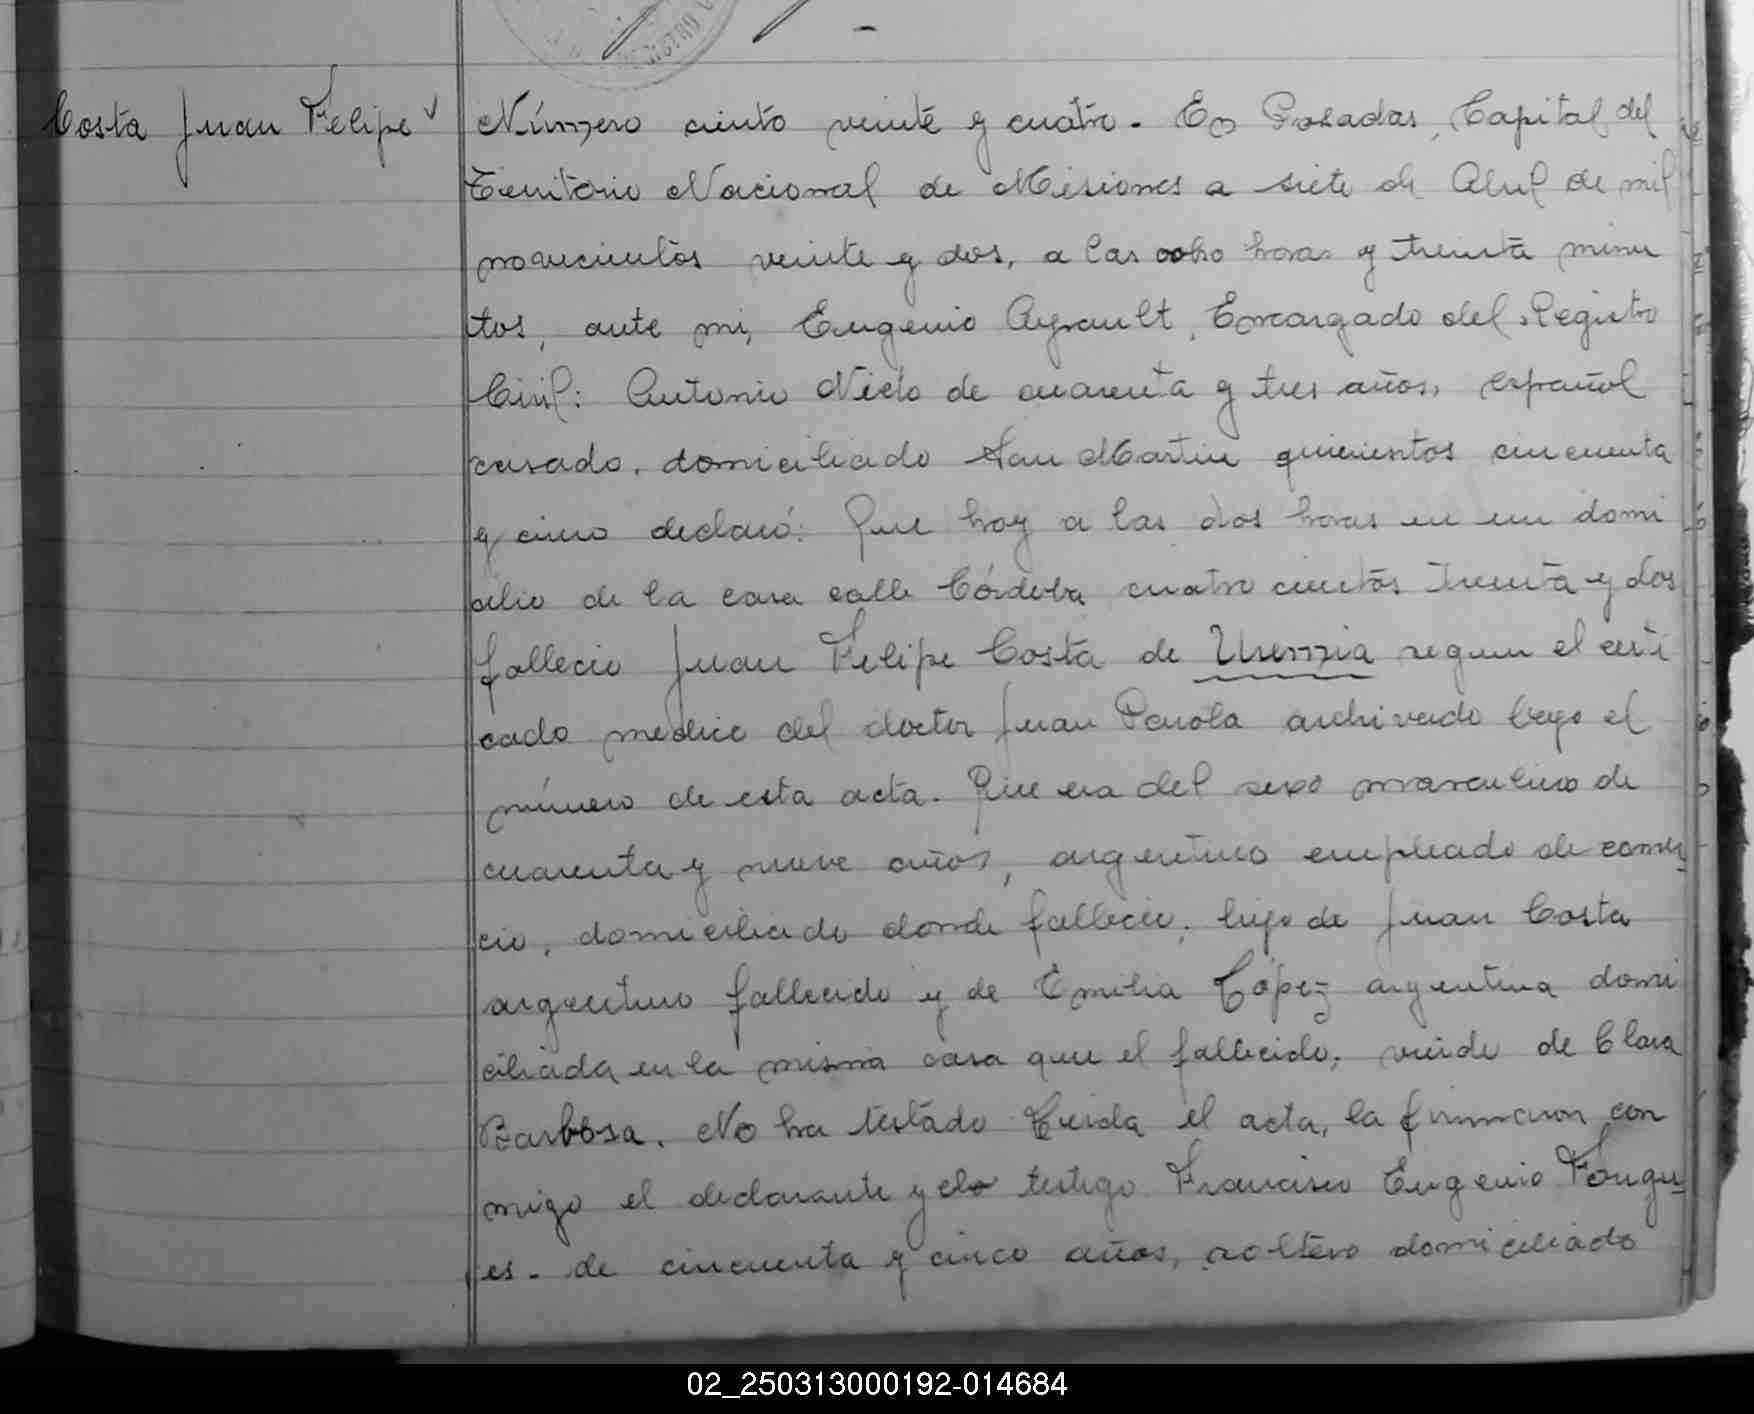 REGISTRO
Costa Juan Felipe
Número ciento veinte y cuatro. En Posadas, Capital del
Territorio Nacional de Misiones a siete de Abril de mil
novecientos veinte y dos, a las ocho horas y treinta minu
tos, ante mi, Eugenio Ayrault, Encargado del Registro
Civil: Antonio Nieto de cuarenta y tres años, español
casado, domiciliado San Martin quinientos cincuenta
y cinco declaró: Que hoy a las dos horas en un domi
cilio de la casa calle Córdoba cuatro cientos treinta y dos
fallecio Juan Felipe Costa de Uremia segun el certi
cado medico del doctor Juan Parola archivado bajo el
número de esta acta. Que era del sexo masculino de
cuarenta y nueve años, argentino empleado de comer
cio, domiciliado donde fallecio; hijo de Juan Costa
argentino fallecido y de Emilia López argentina domi
ciliada en la misma casa que el fallecido; viudo de Clara
Barbosa. No ha testado Leida el acta, la firmaron con
migo el declarante y el testigo Francisco Eugenio Fougu-
es. de cincuenta y cinco años, soltero domiciliado
02_250313000192-014684